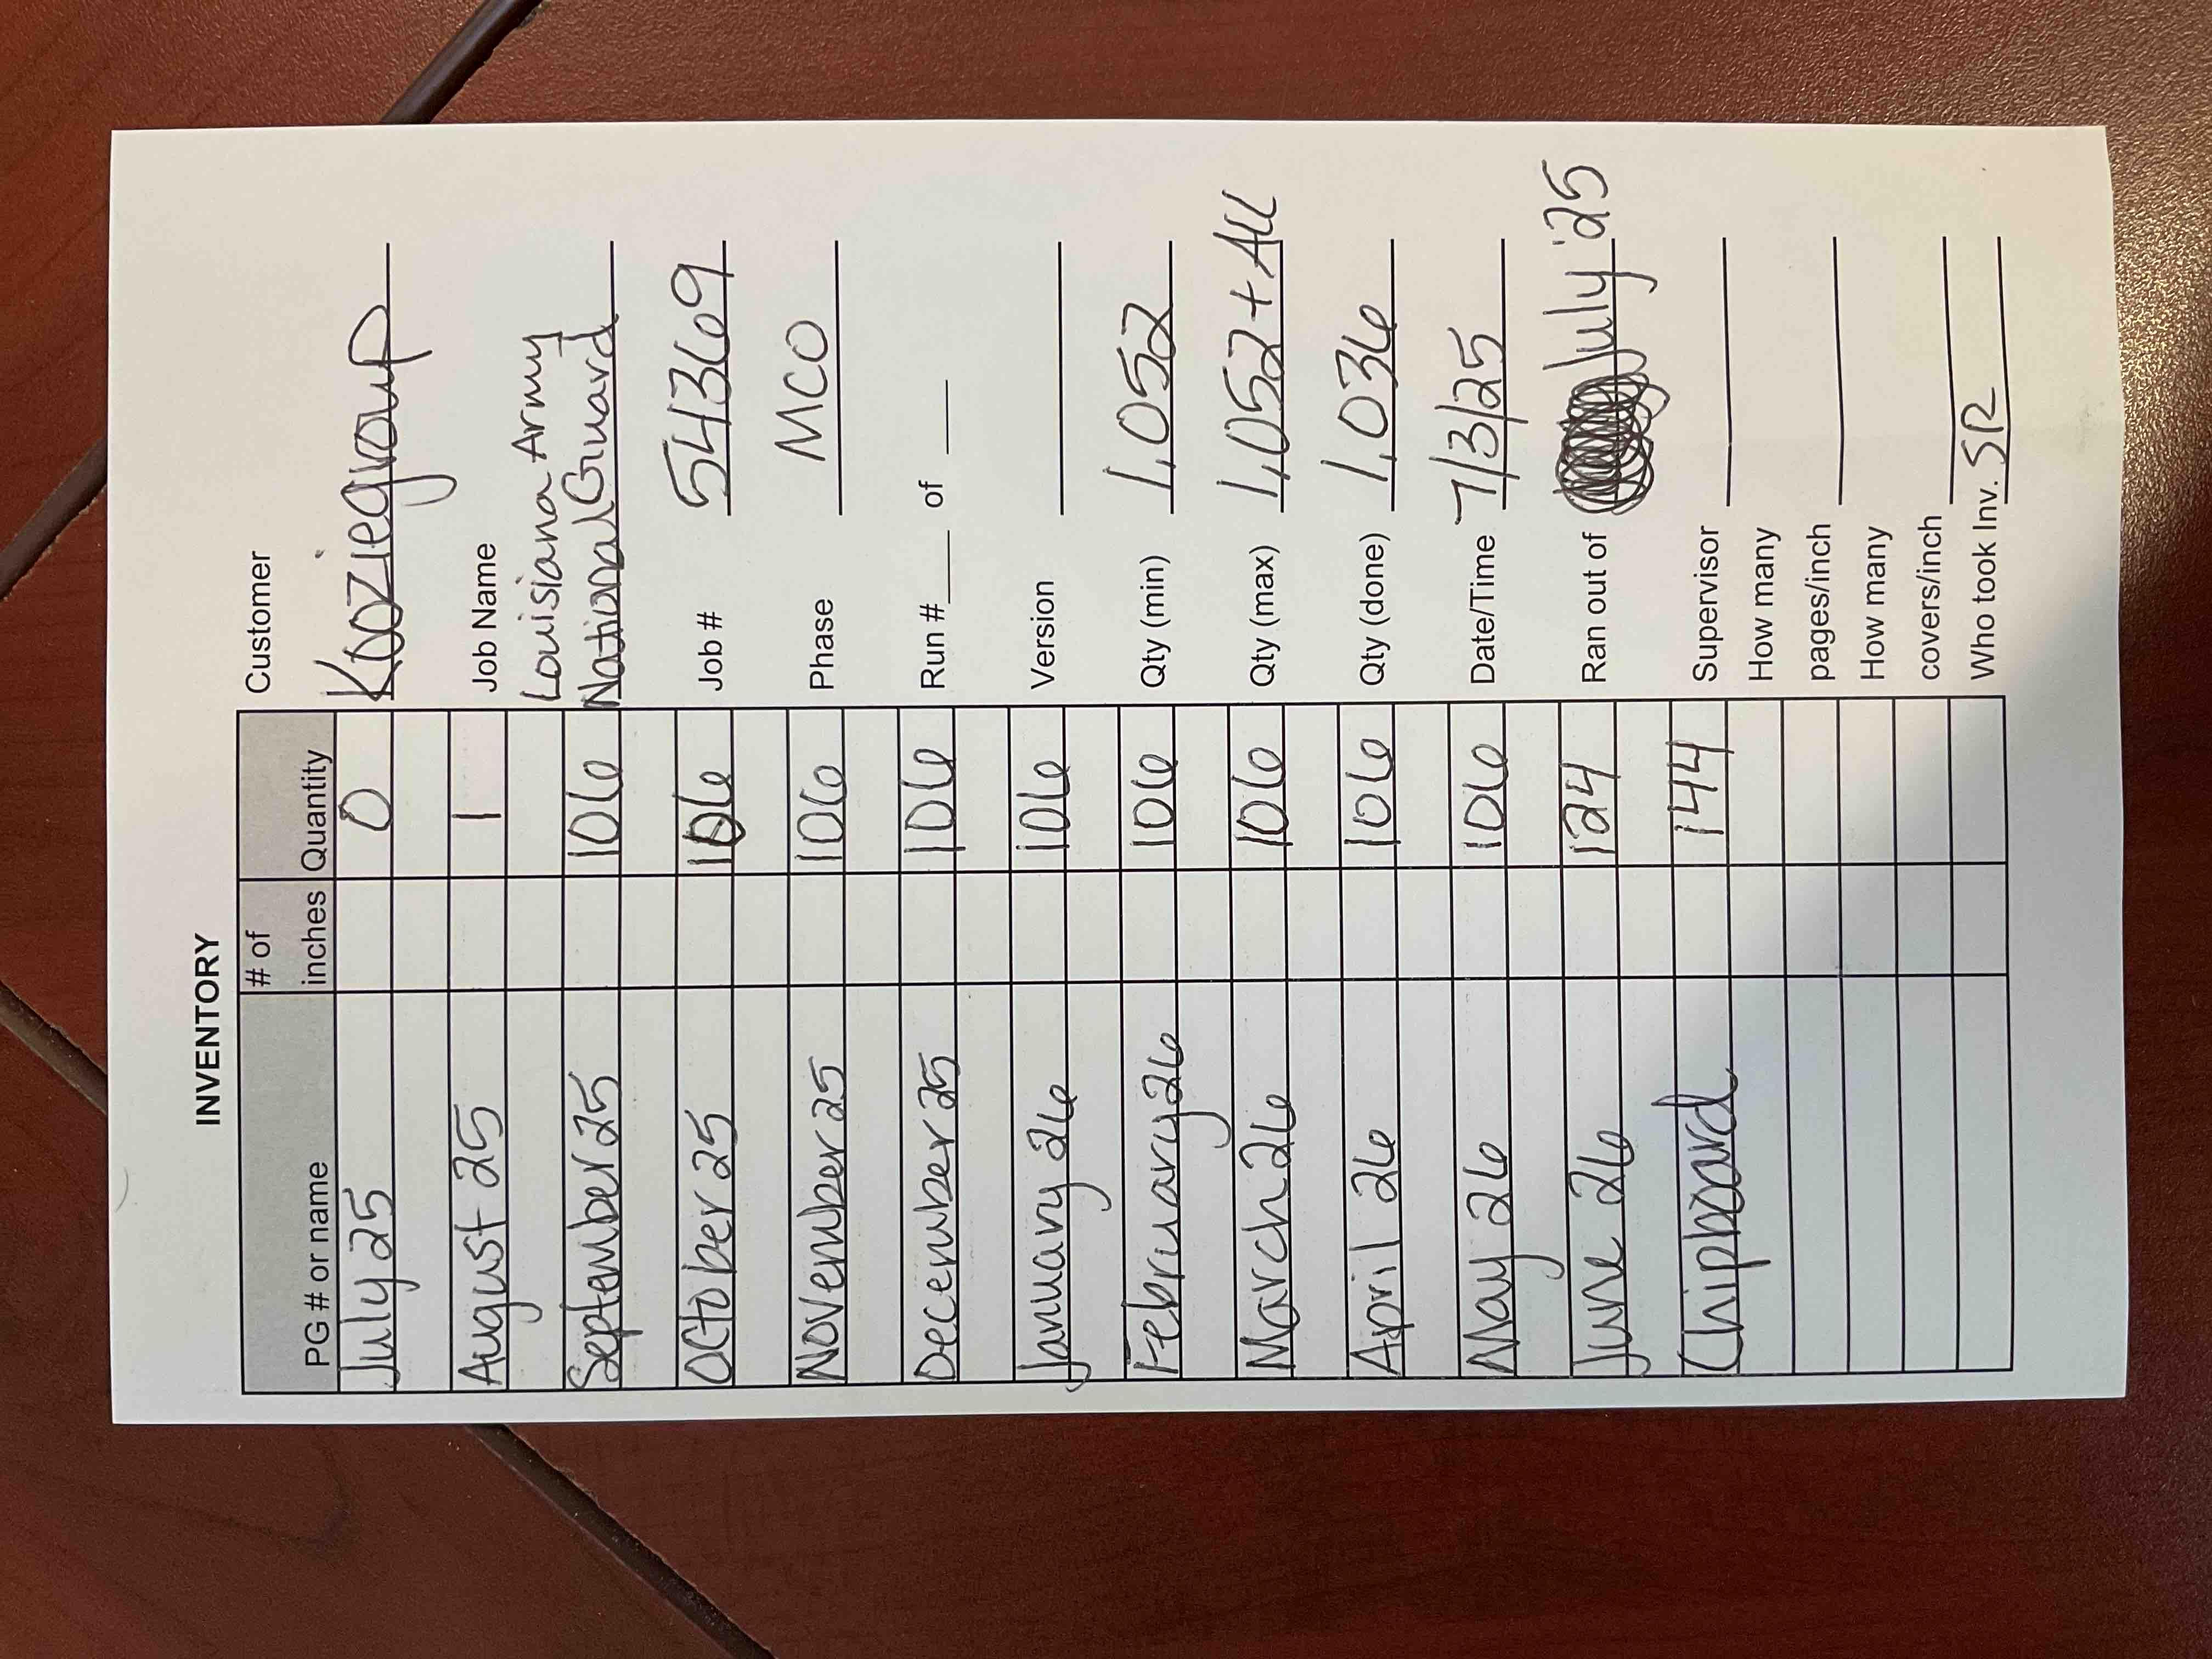 INVENTORY
PG # or name # of inches Quantity
July 25 0
August 25 1
September 25 106
October 25 106
November 25 106
December 25 106
January 26 106
February 26 106
March 26 106
April 26 106
May 26 106
June 26 124
Chipboard 144
Customer
Kooziegroup
Job Name
Louisiana Army
National Guard
Job # 54369
Phase MCO
Run #____ of ____
Version
Qty (min) 1,052
Qty (max) 1,052 + All
Qty (done) 1,036
Date/Time 7/3/25
Ran out of July '25
Supervisor
How many
pages/inch
How many
covers/inch
Who took Inv. SR